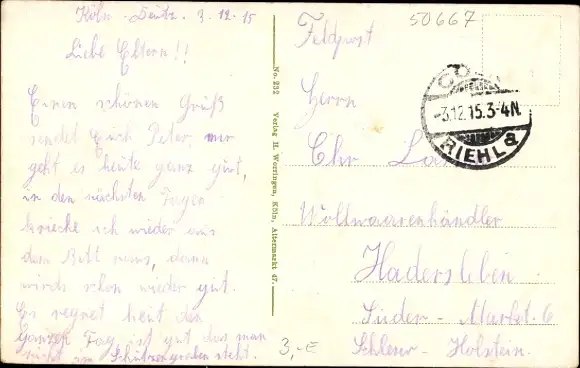 Köln - Deutz. 3.12.15
Liebe Eltern!!
Einen schönen Gruß
sendet Euch Peter, mir
geht es heute ganz gut,
in den nächsten Tagen
krieche ich wieder aus
dem Bett raus, dann
wirds schon wieder gut.
Es regnet heut den
ganzen Tag, ist gut das man
nicht im Schützengraben steht.
No. 232 Verlag H. Worringen, Köln, Altermarkt 47.
50667
Feldpost
Herrn
Chr
Wollwaarenhändler
Hadersleben
Süder-Markt. 6
Schlesw - Holstein.
3,-E
-3.12.15.3-4N.
RIEHL a